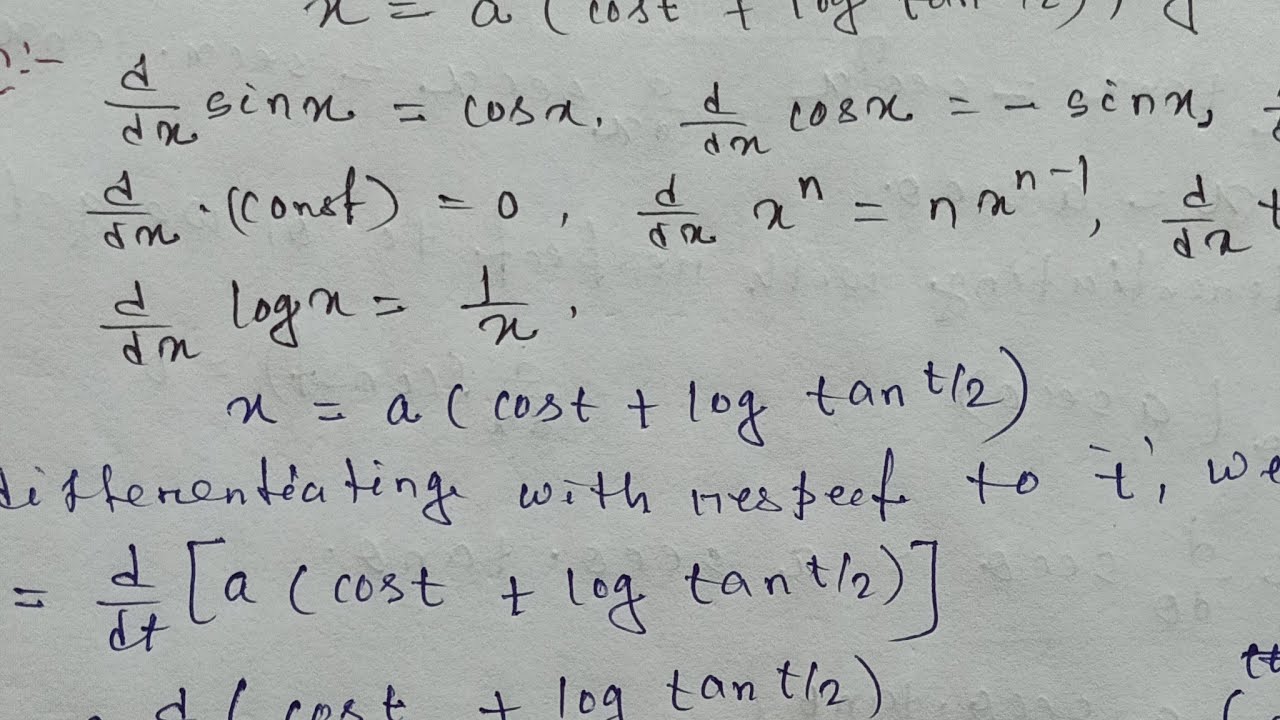 x = a (cost + log tan t/2), y
d/dx sinx = cosx. d/dx cosx = - sinx,
d/dx . (const) = 0, d/dx x^n = nx^(n-1), d/dx t
d/dx logx = 1/x.
x = a (cost + log tan t/2)
differentiating with respect to 't', we
= d/dt [a (cost + log tan t/2)]
d (cost + log tan t/2)